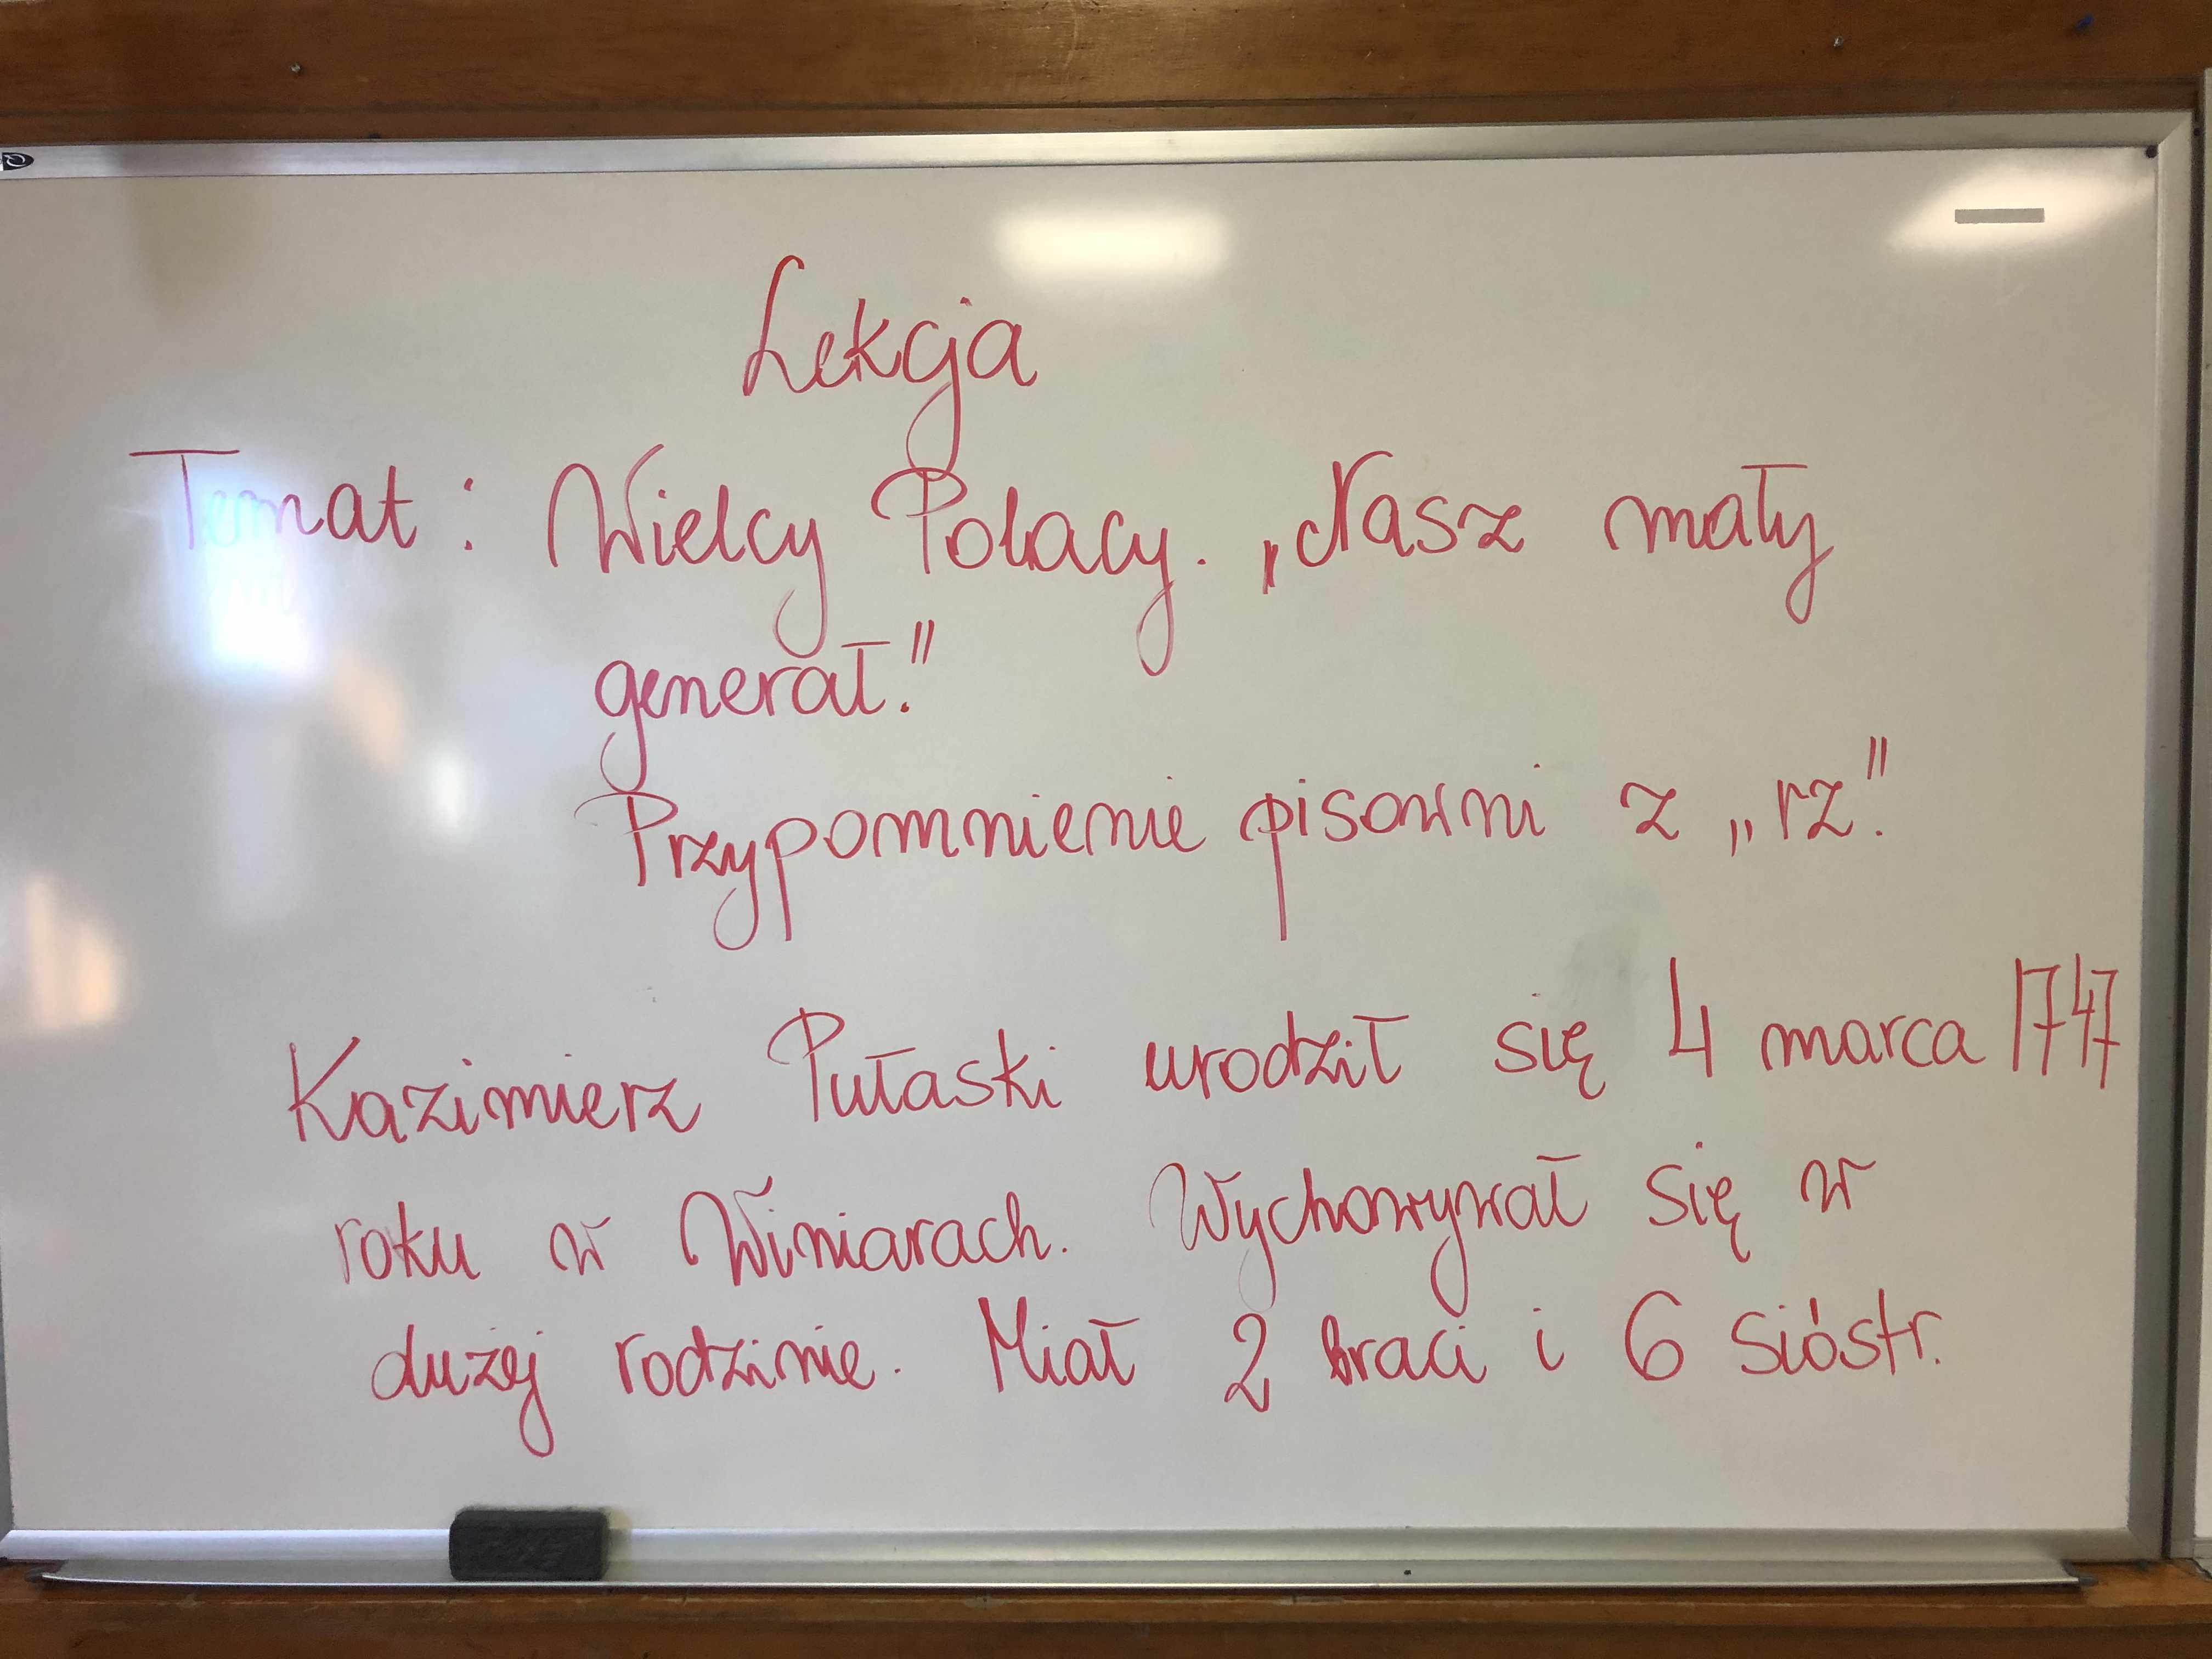 Lekcja
Temat: Wielcy Polacy. „Nasz mały
generał."
Przypomnienie pisowni z „rz".
Kazimierz Pułaski urodził się 4 marca 1747
roku w Winiarach. Wychowywał się w
dużej rodzinie. Miał 2 braci i 6 sióstr.